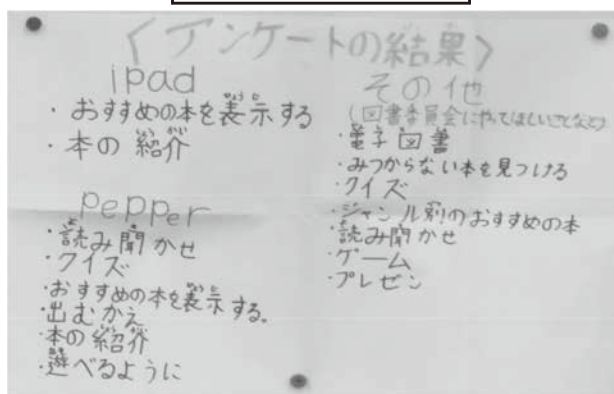 〈アンケートの結果〉
ipad
・おすすめの本を表示する
・本の紹介
pepper
・読み聞かせ
・クイズ
・おすすめの本を表示する。
・出むかえ
・本の紹介
・遊べるように
その他
(図書委員会にやってほしいことなど)
・電子図書
・みつからない本を見つける
・クイズ
・ジャンル別のおすすめの本
・読み聞かせ
・ゲーム
・プレゼン